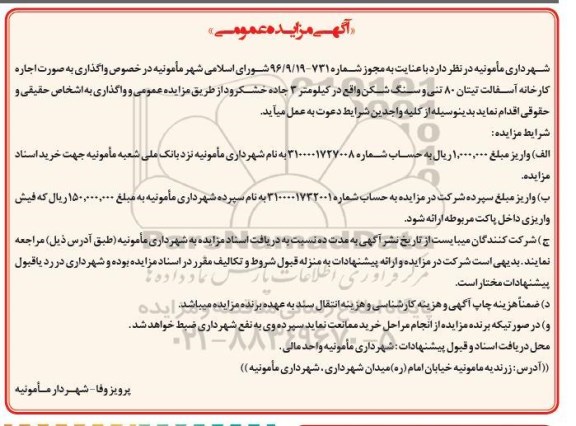 «آگهی مزایده عمومی»
شهرداری مأمونیه در نظر دارد با عنایت به مجوز شماره ۷۳۱-۹۶/۹/۱۹ شورای اسلامی شهر مأمونیه در خصوص واگذاری به صورت اجاره
کارخانه آسفالت تیتان ۸۰ تنی و سنگ شکن واقع در کیلومتر ۳ جاده خشکرود از طریق مزایده عمومی و واگذاری به اشخاص حقیقی و
حقوقی اقدام نماید بدینوسیله از کلیه واجدین شرایط دعوت به عمل میآید.
شرایط مزایده:
الف) واریز مبلغ ۱,۰۰۰,۰۰۰ ریال به حساب شماره ۳۱۰۰۰۰۱۷۲۷۰۰۸ به نام شهرداری مأمونیه نزد بانک ملی شعبه مأمونیه جهت خرید اسناد
مزایده.
ب) واریز مبلغ سپرده شرکت در مزایده به حساب شماره ۳۱۰۰۰۰۱۷۳۲۰۰۱ به نام سپرده شهرداری مأمونیه به مبلغ ۱۵۰,۰۰۰,۰۰۰ ریال که فیش
واریزی داخل پاکت مربوطه ارائه شود.
ج) شرکت کنندگان میبایست از تاریخ نشر آگهی به مدت ده نسبت به دریافت اسناد مزایده به شهرداری مأمونیه (طبق آدرس ذیل) مراجعه
نمایند. بدیهی است شرکت در مزایده و ارائه پیشنهادات به منزله قبول شروط و تکالیف مقرر در اسناد مزایده بوده و شهرداری در رد یا قبول
پیشنهادات مختار است.
د) ضمناً هزینه چاپ آگهی و هزینه کارشناسی و هزینه انتقال سند به عهده برنده مزایده میباشد.
و) در صورتیکه برنده مزایده از انجام مراحل خرید ممانعت نماید سپرده وی به نفع شهرداری ضبط خواهد شد.
محل دریافت اسناد و قبول پیشنهادات: شهرداری مأمونیه واحد مالی.
((آدرس: زرندیه مامونیه خیابان امام (ره) میدان شهرداری، شهرداری مأمونیه))
پرویز وفا - شهردار مأمونیه
ParsNamadData
مرکز فرآوری اطلاعات پارس نماد داده ها
۰۲۱-۸۸۳۴۹۶۷۰-۵